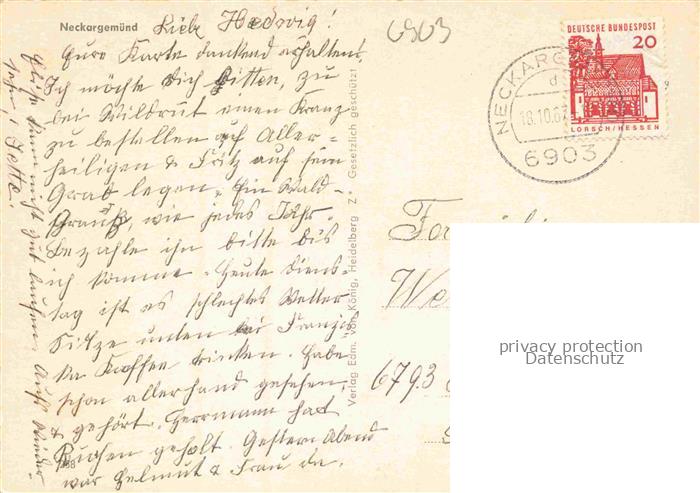 Neckargemünd
Liebe Hedwig!
6903
Eure Karte dankend erhalten,
Ich möchte dich bitten, zu
bei Wildrut einen Kranz
zu bestellen auf Aller-
heiligen & Fritz auf sein
Grab legen. Ein Wald-
wie jedes Jahr.
Bezahle ihn bitte bis
ich komme. Heute Diens-
tag ist es schlechtes Wetter
Sitze unten bei Franzis
ka Kaffee trinken. Habe
schon allerhand gesehen
& gehört. Herrmann hat
Kuchen geholt. Gestern Abend
war Helmut & Frau da.
gut laufen. Auf Wieder-
sehn!
Verlag Edm. von König, Heidelberg Z Gesetzlich geschützt
DEUTSCHE BUNDESPOST
20
LORSCH/HESSEN
NECKARG
d
18.10.67
6903
6793
privacy protection
Datenschutz